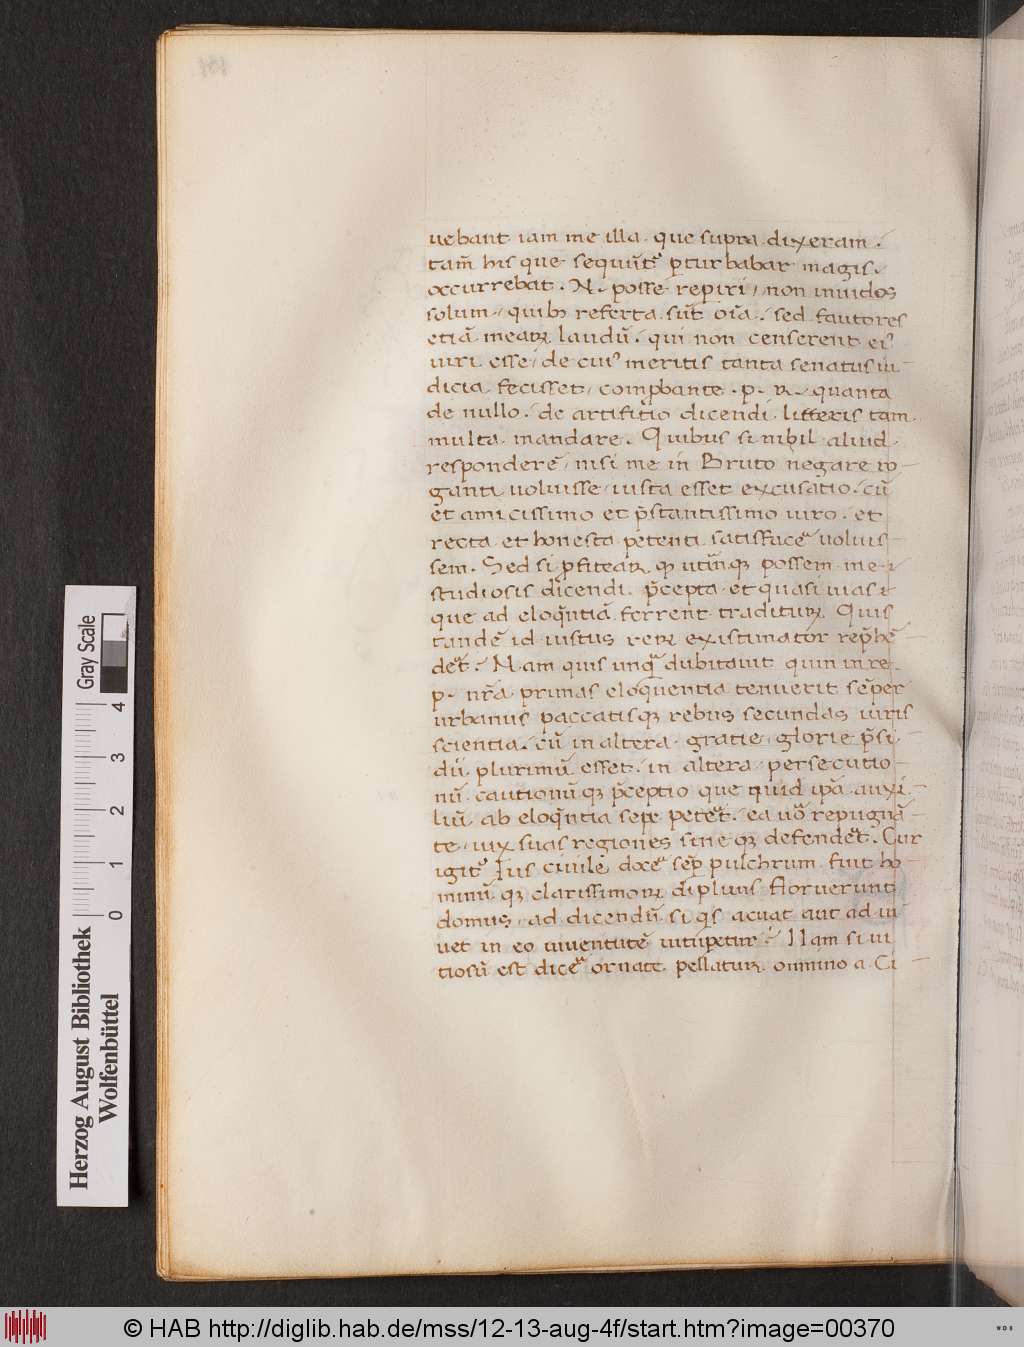 uebant iam me illa. que supra dixeram.
tam̄ his que sequūt᷒ ꝑturbabar magis.
occurrebat. N. posse reperiri / non inuidos
solum / quibꝫ referta sūt oīa. sed fautores
etiā meaꝝ laudū. qui non censerent ei᷒
uiri esse / de cui᷒ meritis tanta senatus iu-
dicia fecisset / comꝓbante. p. r. quanta
de nullo. de artifitio dicendi litteris tam
multa mandare. Quibus si nihil aliud
responderē / nisi me in Bruto negare ro-
ganti uoluisse / iusta esset excusatio. cū
et amicissimo et p̄stantissimo uiro. et
recta et honesta petenti satisfacē uoluis-
sem. Sed si ꝓfiteaꝝ qꝫ utināqꝫ possem me
studiosis dicendi p̄cepta et quasi uias
que ad eloq̄ntiā ferrent tradituꝝ Quis
tandē id iustus reꝝ existimator rep̄hē-
det̄. Nam quis unq̄ dubitauit quin in re.
p. nr̄a primas eloquentia tenuerit semꝑ
urbanis paccatisqꝫ rebus secundas iuris
scientia. cū in altera gratie / glorie p̄si-
dii plurimū esset. in altera / persecutio-
nū cautionūqꝫ p̄ceptio que quid ip̄a auxi-
liū ab eloq̄ntia sepe petēt. ea uō repugnā-
te / uix suas regiones sineqꝫ defendēt. Cur
igit᷒ Ius ciuile docē semꝑ pulchrum fuit ho-
minūqꝫ clarissimoꝝ dipluis floruerunt
domus / ad dicendū si q̄s acuat aut ad iu-
uet in eo iuuentutē uituperetur? Nam si ui-
tiosū est dicē ornate pellatuꝝ omnino a Ci-
Gray Scale
0 1 2 3 4
Herzog August Bibliothek
Wolfenbüttel
© HAB http://diglib.hab.de/mss/12-13-aug-4f/start.htm?image=00370